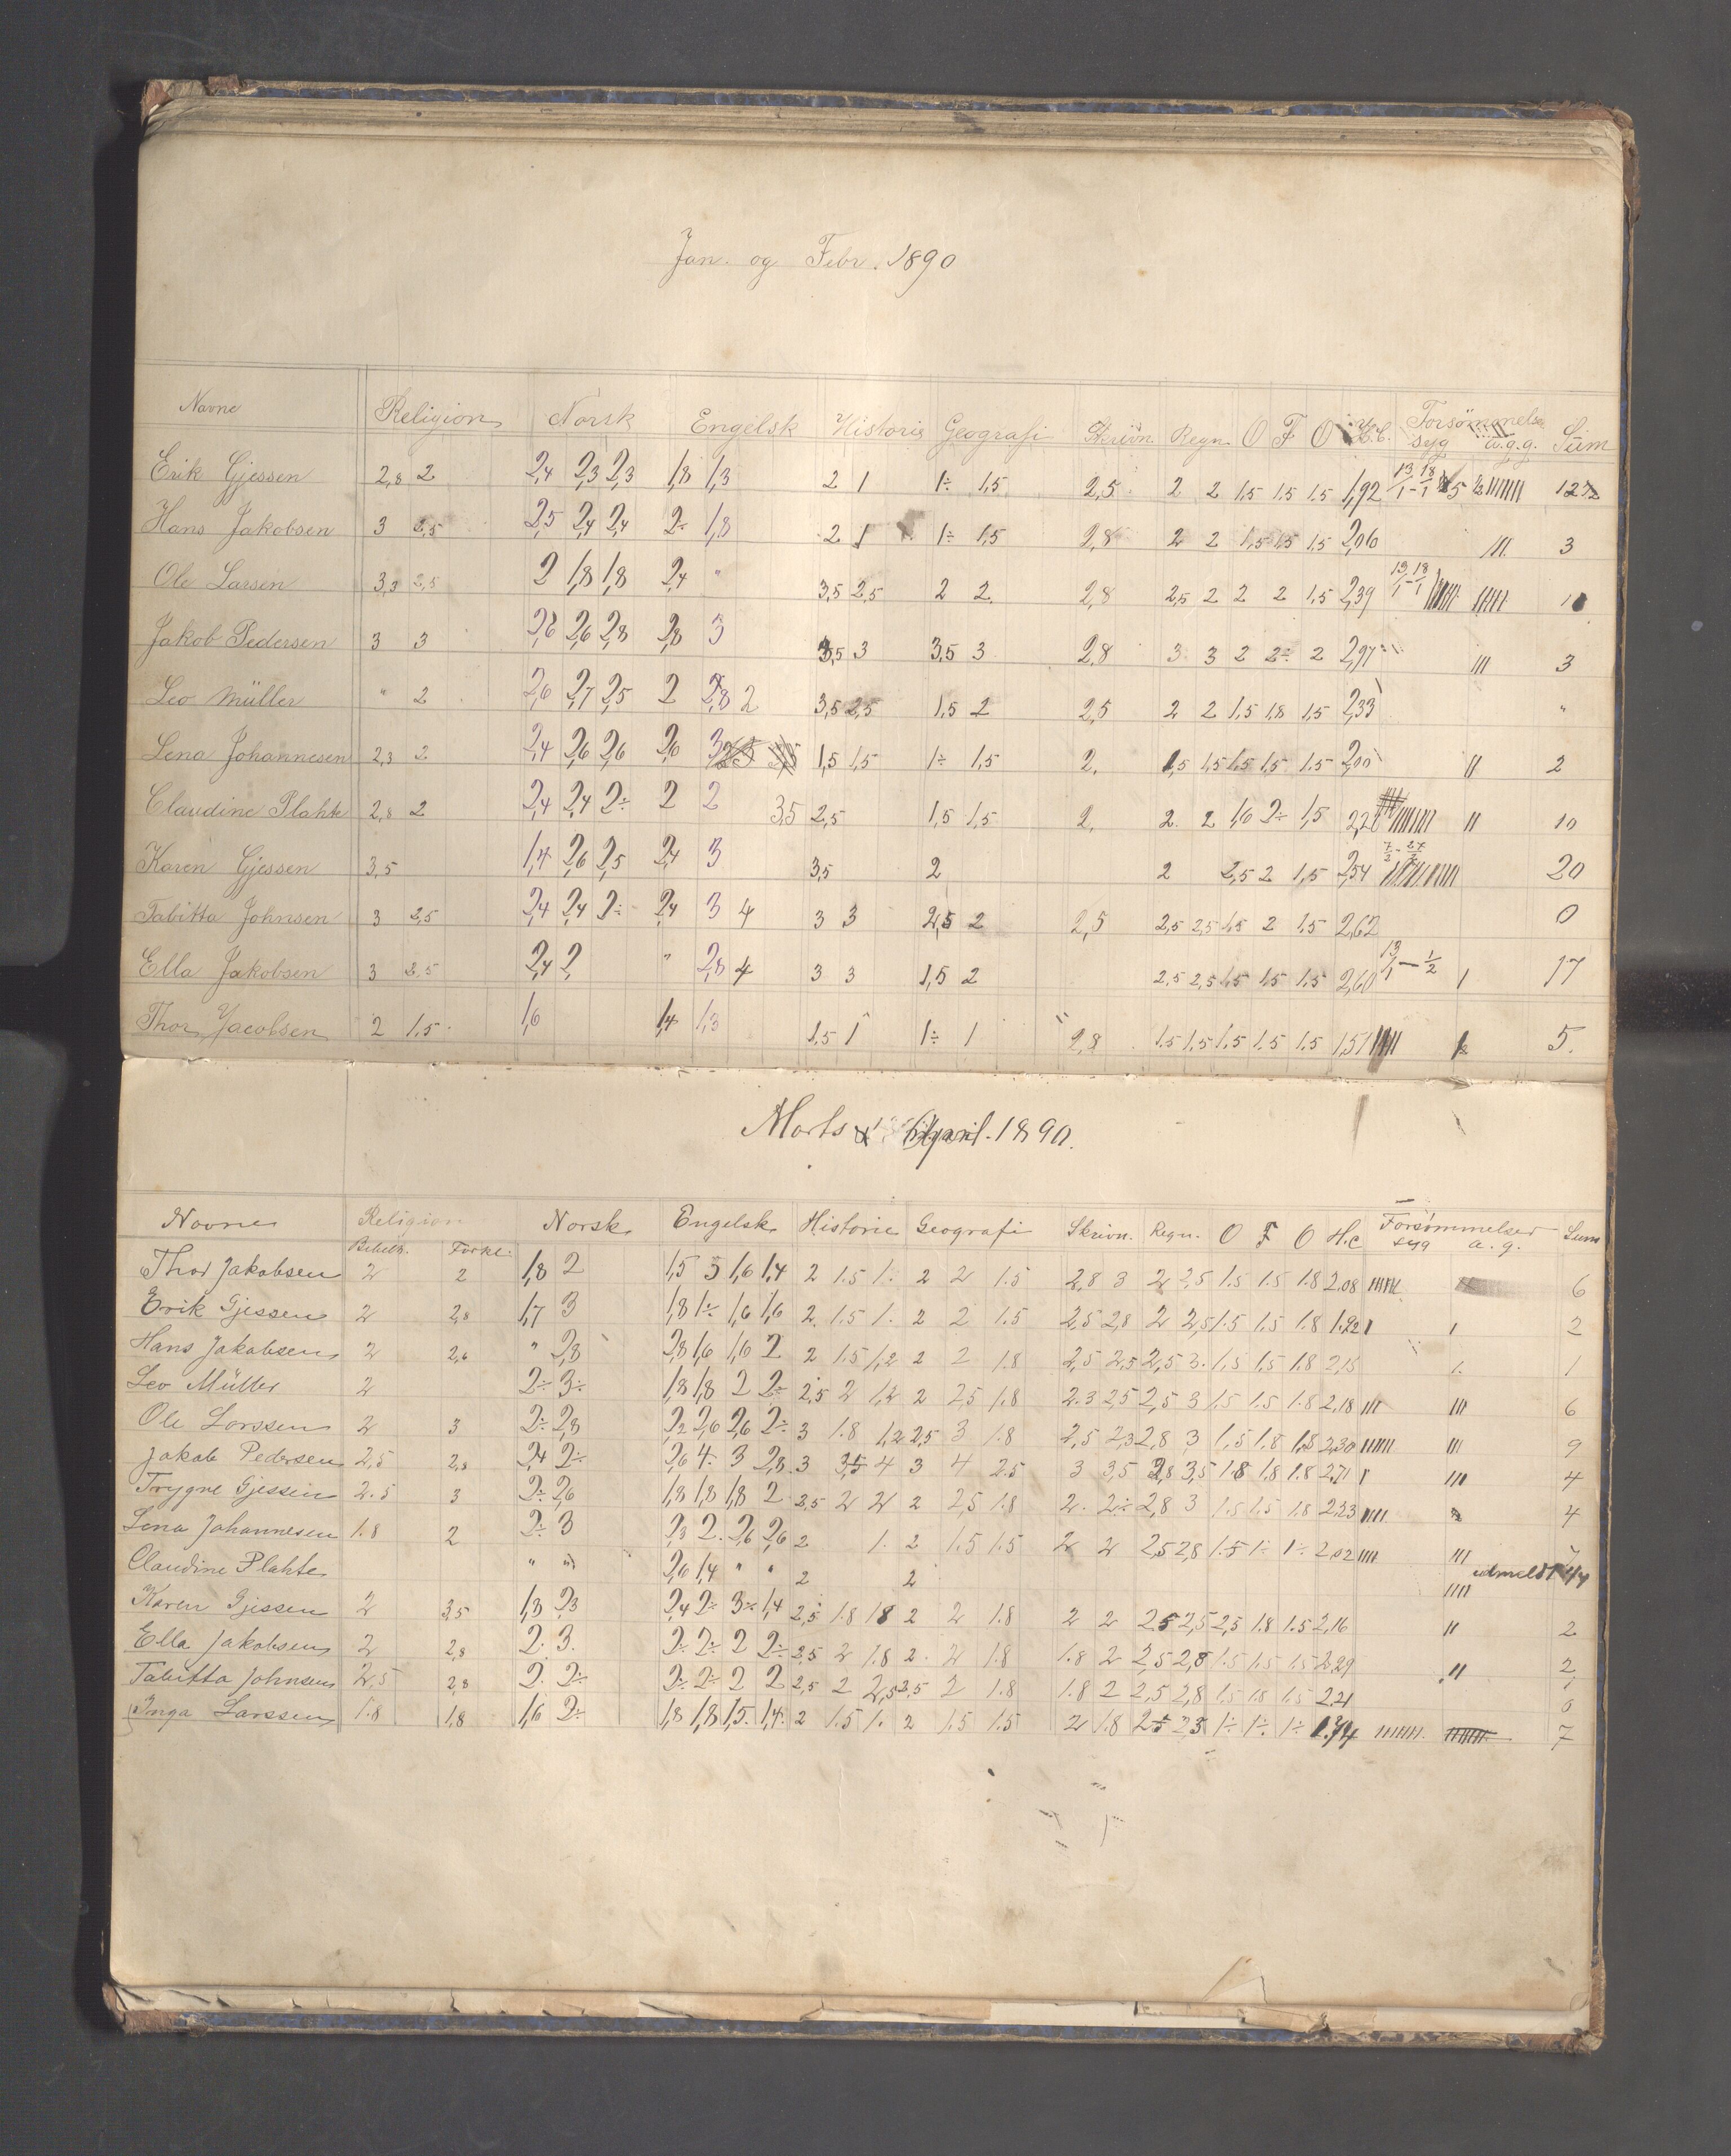 Jan. og Febr. 1890
Navne Religion Norsk Engelsk Historie Geografi Skrivn. Regn. O F O H.C. Forsömmelse syg a.g.g. Sum
Erik Gjessen 2,8 2 2,4 2,3 2,3 1,8 1,3 2 1 1÷ 1,5 2,5 2 2 1,5 1,5 1,5 1,92 13/1 - 18/1
Hans Jakobsen 3 2,5 2,5 2,4 2,4 2÷ 1,8 2 1 1÷ 1,5 2,8 2 2 1,5 1,5 1,5 2,06 III 3
Ole Larsen 3,3 2,5 2 1,8 1,8 2,4 " 3,5 2,5 2 2. 2,8 2,5 2 2 2 1,5 2,39 13/1 - 18/1
Jakob Pedersen 3 3 2,6 2,6 2,8 2,8 3 3,5 3 3,5 3 2,8 3 3 2 2÷ 2 2,97 III 3
Leo Müller " 2 2,6 2,7 2,5 2 2,8 2 3,5 2,5 1,5 2 2,5 2 2 1,5 1,8 1,5 2,33 "
Lena Johannesen 2,3 2 2,4 2,6 2,6 2,6 3 1,5 1,5 1÷ 1,5 2. 1,5 1,5 1,5 1,5 1,5 2,00 II 2
Claudine Plahte 2,8 2 2,4 2,4 2÷ 2 2 3,5 2,5 1,5 1,5 2. 2. 2 1,6 2÷ 1,5 II 10
Karen Gjessen 3,5 1,4 2,6 2,5 2,4 3 3,5 2 2 2,5 2 1,5 2,54 20
Tabitta Johnsen 3 2,5 2,4 2,4 2÷ 2,4 3 4 3 3 2,5 2 2,5 2,5 2,5 1,5 2 1,5 2,62 0
Ella Jakobsen 3 2,5 2,4 2 " 2,8 4 3 3 1,5 2 2,5 2,5 1,5 1,5 1,5 2,60 13/1 — 1/2 I 17
Thor Jacobsen 2 1,5 1,6 1,4 1,3 1,5 1 1÷ 1 2,8 1.5 1,5 1,5 1,5 1,5 1,51 5.
Marts & April 1890.
Navne Religion Norsk Engelsk Historie Geografi Skrivn. Regn. O F O H.C Forsømmelser Sum
Bibelh. Forkl. syg a.g.
Thor Jakobsen 2 2 1,8 2 1,5 3 1,6 1,4 2 1.5 1. 2 2 1.5 2,8 3 2 2,5 1.5 1.5 1.8 2.08 6
Erik Gjessen 2 2,8 1,7 3 1,8 1÷ 1,6 1,6 2. 1.5 1. 2 2 1.5 2,5 2,8 2 2,5 1.5 1.5 1.8 1.92 I I 2
Hans Jakobsen 2 2,6 " 2,8 2,8 1,6 1,6 2 2 1.5 1,2 2 2 1.8 2,5 2,5 2,5 3. 1.5 1,5 1,8 2,15 I. 1
Leo Müller 2 2÷ 3÷ 1,8 1,8 2 2÷ 2,5 2 1,2 2 2,5 1.8 2.3 2,5 2,5 3 1.5 1.5 1.8 2.18 III III 6
Ole Larssen 2 3 2÷ 2,8 2,2 2,6 2,6 2÷ 3 1.8 1,2 2,5 3 1.8 2,5 2,3 2,8 3 1,5 1.8 1,8 2,30 III 9
Jakob Pedersen 2,5 2,8 2,4 2÷ 2,6 4. 3 2,8 3 3,5 4 3 4 2.5 3 3,5 2,8 3,5 1.8 1.8 1.8 2,71 I III 4
Trygve Gjessen 2.5 3 2÷ 2,6 1,8 1,8 1,8 2 2,5 2 2 2 2,5 1.8 2. 2÷ 2,8 3 1.5 1.5 1.8 2,23 IIII 4
Lena Johannesen 1.8 2 2÷ 3 2,3 2. 2,6 2,6 2 1. 2 1.5 1.5 2 2 2,5 2,8 1.5 1÷ 1÷ 2,02 IIII III 7
Claudine Plahte " " 2,6 1,4 " " 2 2 IIII udmeldt
Karen Gjessen 2 3,5 1,3 2,3 2,4 2÷ 3÷ 1,4 2,5 1.8 1.8 2 2 1.8 2 2 2.5 2,5 2,5 1.8 1.5 2,16 II 2
Ella Jakobsen 2 2,8 2. 3. 2÷ 2÷ 2 2÷ 2,5 2 1.8 2. 2 1.8 1.8 2 2,5 2,8 1.5 1.5 1.5 2,29 II 2
Tabitta Johnsen 2,5 2,8 2. 2÷ 2÷ 2÷ 2 2 2,5 2 2,5 2,5 2 1.8 1.8 2 2,5 2,8 1.5 1.8 1.5 2,21 0
Inga Larssen 1.8 1,8 1,6 2÷ 1,8 1,8 1,5. 1,4. 2 1.5 1. 2 1.5 1.5 2 1.8 2,5 2,5 1÷ 1÷ 1÷ 7